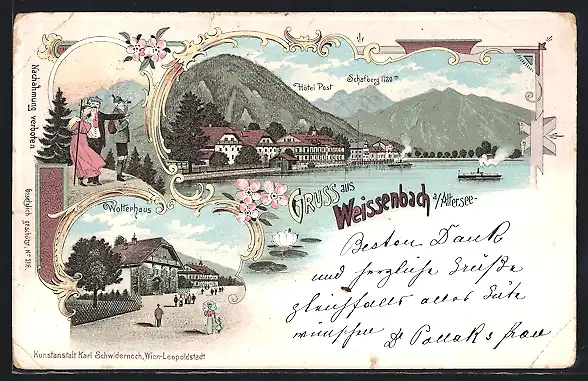 Nachahmung verboten
Gesetzlich geschützt. No 216.
Hôtel Post
Schafberg 1780 m
Wolterhaus
GRUSS aus
Weissenbach a/Attersee-
Besten Dank
und herzliche Grüße
gleichfalls alles Gute
wünschen Dr Pollak s frau
Kunstanstalt Karl Schwidernoch, Wien-Leopoldstadt